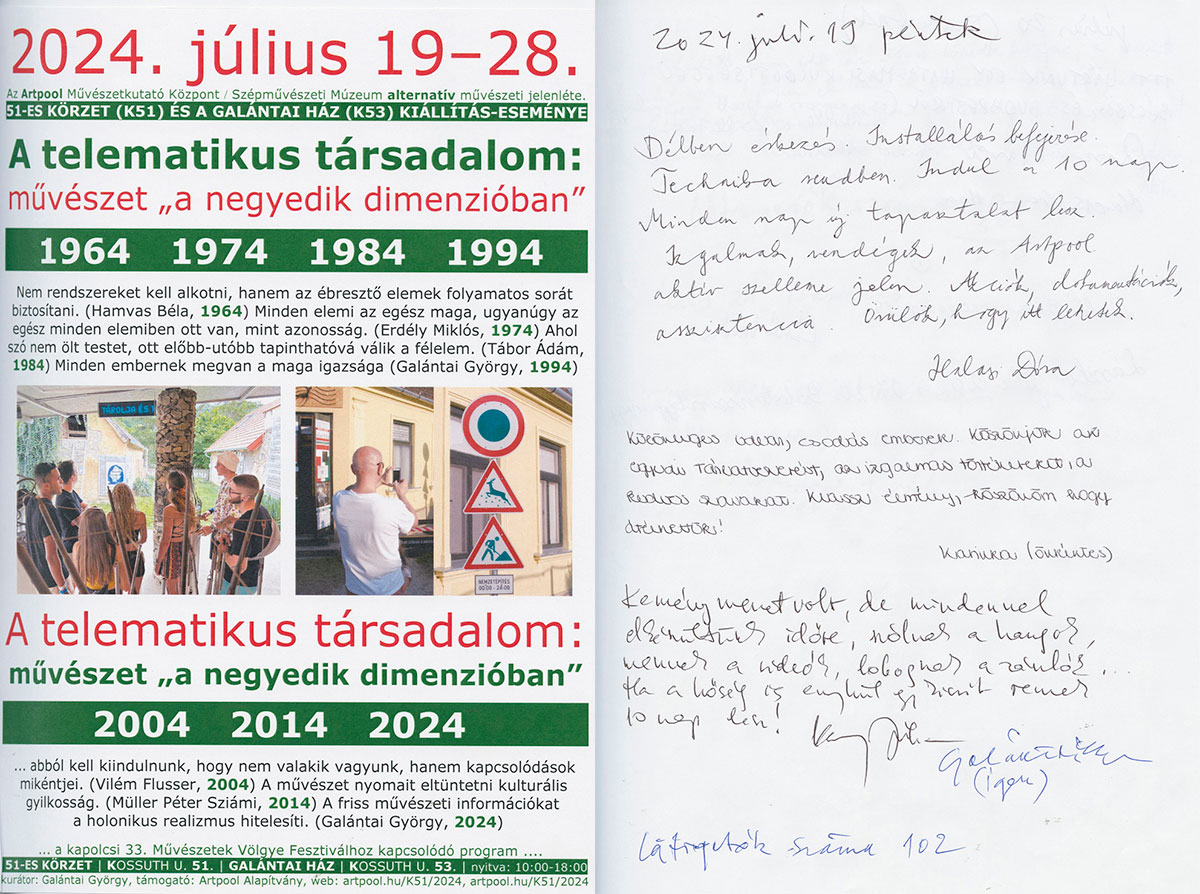 2024. július 19–28.
Az Artpool Művészetkutató Központ / Szépművészeti Múzeum alternatív művészeti jelenléte.
51-ES KÖRZET (K51) ÉS A GALÁNTAI HÁZ (K53) KIÁLLÍTÁS-ESEMÉNYE
A telematikus társadalom:
művészet „a negyedik dimenzióban”
1964 1974 1984 1994
Nem rendszereket kell alkotni, hanem az ébresztő elemek folyamatos sorát
biztosítani. (Hamvas Béla, 1964) Minden elemi az egész maga, ugyanúgy az
egész minden elemiben ott van, mint azonosság. (Erdély Miklós, 1974) Ahol
szó nem ölt testet, ott előbb-utóbb tapinthatóvá válik a félelem. (Tábor Ádám,
1984) Minden embernek megvan a maga igazsága (Galántai György, 1994)
TÁROLJA ÉS T
NEMZETÉPÍTÉS
00:00 - 24:00
A telematikus társadalom:
művészet „a negyedik dimenzióban”
2004 2014 2024
... abból kell kiindulnunk, hogy nem valakik vagyunk, hanem kapcsolódások
mikéntjei. (Vilém Flusser, 2004) A művészet nyomait eltüntetni kulturális
gyilkosság. (Müller Péter Sziámi, 2014) A friss művészeti információkat
a holonikus realizmus hitelesíti. (Galántai György, 2024)
... a kapolcsi 33. Művészetek Völgye Fesztiválhoz kapcsolódó program ....
51-ES KÖRZET | KOSSUTH U. 51. | GALÁNTAI HÁZ | KOSSUTH U. 53. | nyitva: 10:00-18:00
kurátor: Galántai György, támogató: Artpool Alapítvány, web: artpool.hu/K51/2024, artpool.hu/K51/2024
2024. júli. 19 péntek
Délben érkezés. Installálás befejezése.
Technika rendben. Indul a 10 nap.
Minden nap új tapasztalat lesz.
Izgalmak, vendégek, az Artpool
aktív szelleme jelen. Akciók, dokumentációk,
asszisztencia. Örülök, hogy itt lehetek.
Halasi Dóra
Különleges udvar, csodás emberek. Köszönjük az
egyedi tárlatvezetést, az izgalmas történeteket, a
kedves szavakat. Klassz élmény, köszönöm hogy
átélhettük!
Kamilla (önkéntes)
Kemény menet volt, de mindennel
elkészültünk időre, szólnak a hangok,
mennek a videók, lobognak a zászlók...
Ha a hőség is enyhül egy kicsit remek
10 nap lesz!
Galántai
(igen)
Látogatók száma 102